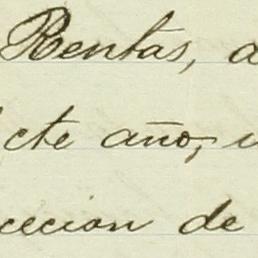 Rentas, a
cte año,
cecion de